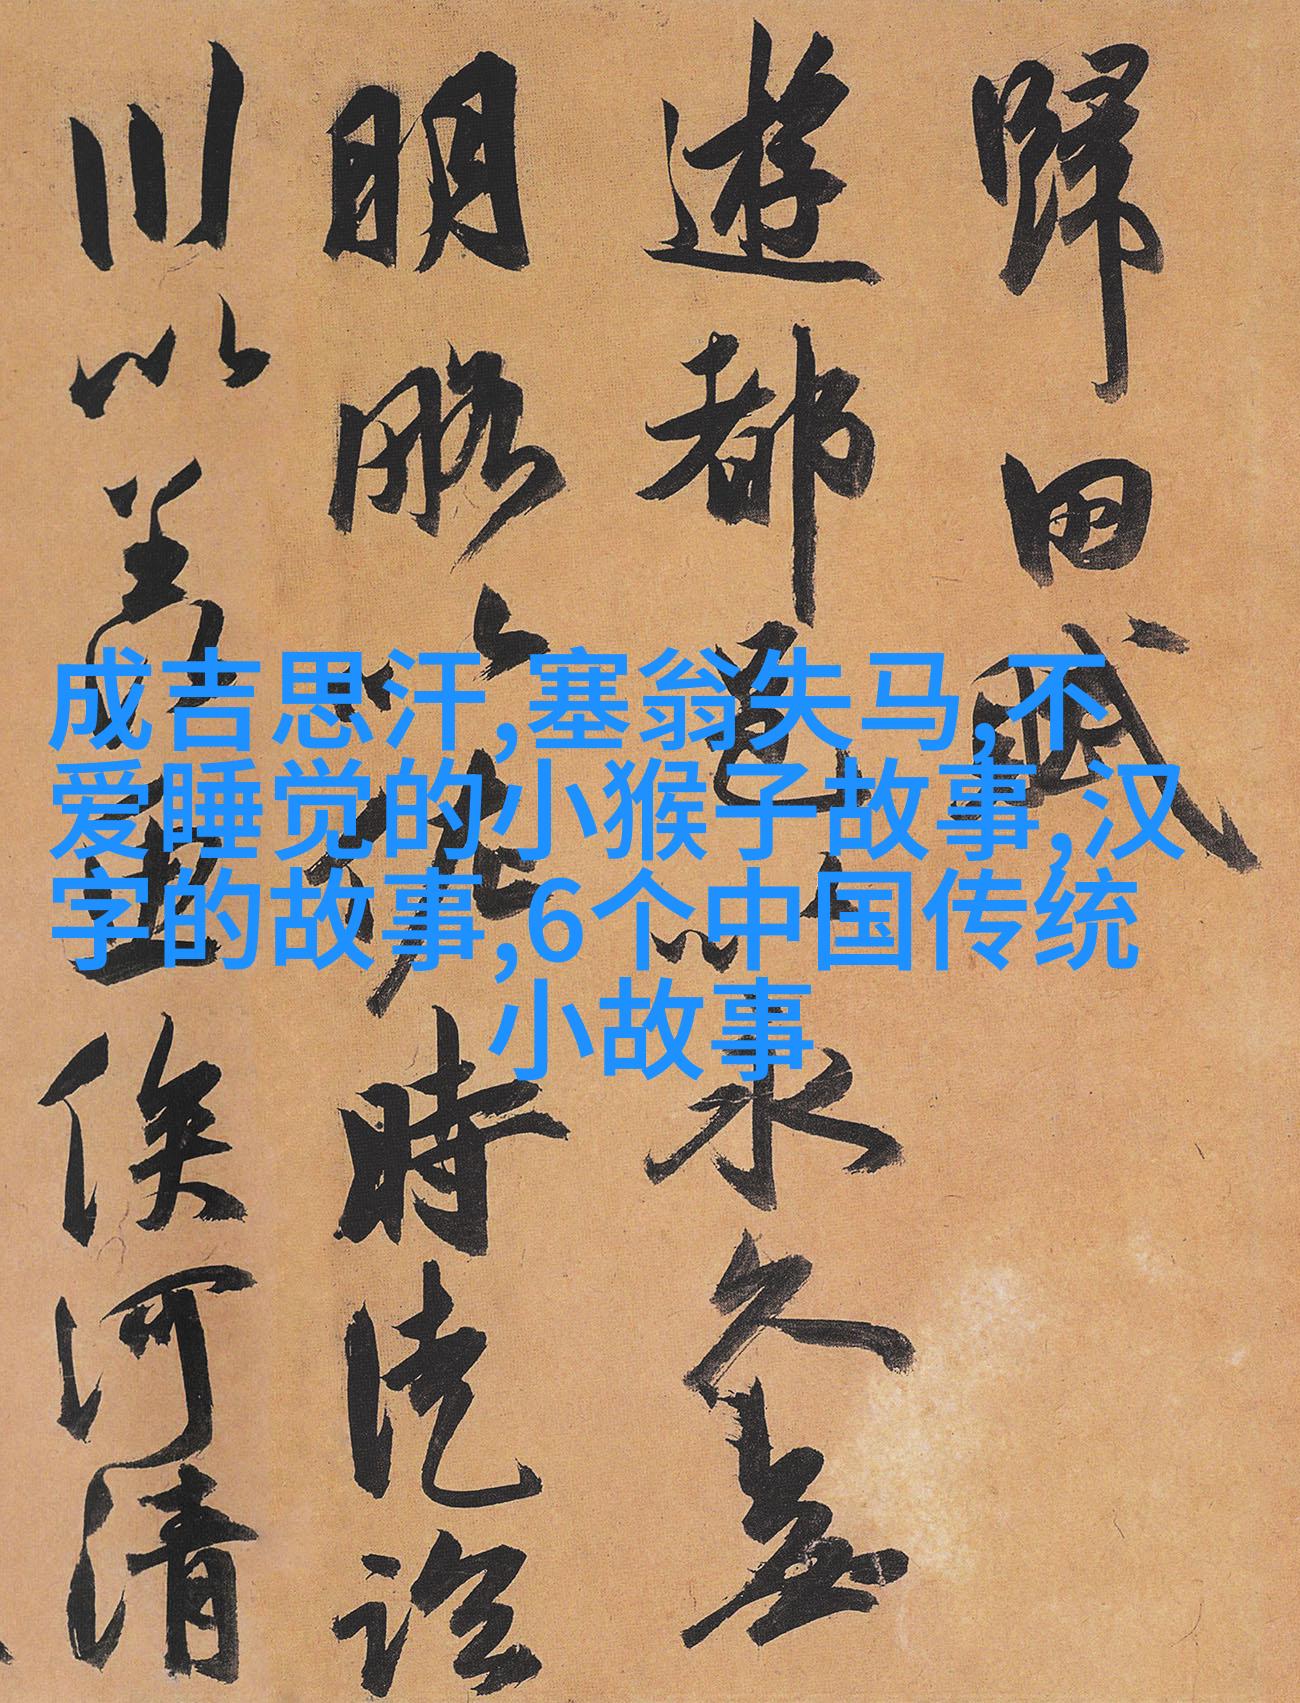 歸田賦
遊都邑以永久無
明略以佐時徒
川以羨
俟河清
成吉思汗,塞翁失马,不
爱睡觉的小猴子故事,汉
字的故事,6个中国传统
小故事